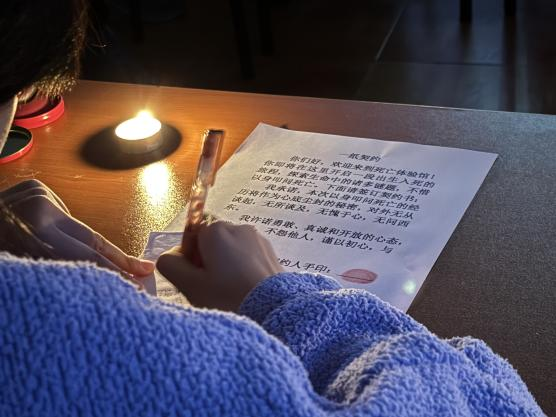 一纸契约
你们好,欢迎来到死亡体验馆!
你即将在这里开启一段出生入死的
旅程,探索生命中的诸多谜题,不惜
以身叩问死亡,下面请签订契约书,
我承诺,本次以身叩问死亡的经
历将作为心底尘封的秘密,对外无从
谈起,无所谈及,无愧于心,无问西
东。
我许诺勇敢、真诚和开放的心态,
不怨他人,谨以初心,与
约人手印: